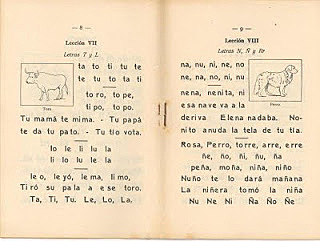 — 8 —
Lección VII
Letras T y L
ta to ti tu te
te tu to ta ti
to ro, to pe,
ti po, to po.
Toro.
Tu mamá te mima. - Tu papá
te da tu pato. - Tu tío vota.
lo le li lu la
li lo lu le la
le o, le yó, le ma, li mo,
Ti ró su pala a ese toro.
Ta, Ti, Tu. Le, Lo, La.
— 9 —
Lección VIII
Letras N, Ñ y Rr
na, nu, ni, ne, no
ne, na, no, ni, nu
nena, nenita, ni
esa nave va a la
Perro.
deriva Elena nadaba. No-
nito anuda la tela de tu tía.
Rosa, Perro, torre, arre, erre
ñe, ño, ñi, ñu, ña
peña, moña, niña, niño
Nuño te lo dará mañana
La niñera tomó la niña
Nu Ne Ni Ña Ño Ñe